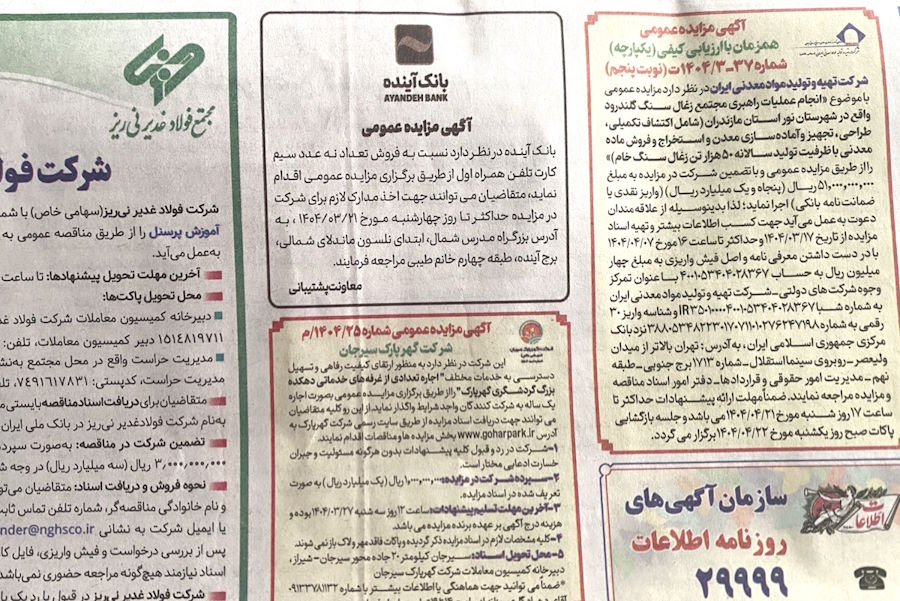 آگهی مزایده عمومی
همزمان با ارزیابی کیفی (یکپارچه)
شماره ۳۷-۱۴۰۴/۳ت (نوبت پنجم)
شرکت تهیه و تولید مواد معدنی ایران در نظر دارد مزایده عمومی
با موضوع «انجام عملیات راهبری مجتمع زغال سنگ گلندرود
واقع در شهرستان نور استان مازندران (شامل اکتشاف تکمیلی،
طراحی، تجهیز و آماده سازی معدن و استخراج و فروش ماده
معدنی با ظرفیت تولید سالانه ۵۰ هزار تن زغال سنگ خام)»
را از طریق مزایده عمومی و با تضمین شرکت در مزایده به مبلغ
۵۱,۰۰۰,۰۰۰,۰۰۰ ریال (پنجاه و یک میلیارد ریال) (واریز نقدی یا
ضمانت نامه بانکی) اجرا نماید؛ لذا بدینوسیله از علاقه مندان
دعوت به عمل می‌آید جهت کسب اطلاعات بیشتر و تهیه اسناد
مزایده از تاریخ ۱۴۰۴/۰۳/۱۷ و حداکثر تا ساعت ۱۶ مورخ ۱۴۰۴/۰۴/۰۷
با در دست داشتن معرفی نامه و اصل فیش واریزی به مبلغ چهار
میلیون ریال به حساب ۴۰۰۱۰۵۳۴۰۴۰۲۸۳۶۷ با عنوان تمرکز
وجوه شرکت های دولتی – شرکت تهیه و تولید مواد معدنی ایران
به شماره شبا IR۳۵۰۱۰۰۰۰۴۰۰۱۰۵۳۴۰۴۰۲۸۳۶۷ و شناسه واریز ۳۰
رقمی به شماره ۳۸۸۰۵۳۴۸۲۲۳۰۱۷۰۷۱۱۰۱۰۲۷۶۲۴۷۱۹۸ نزد بانک
مرکزی جمهوری اسلامی ایران، به آدرس: تهران بالاتر از میدان
ولیعصر – روبروی سینما استقلال – شماره ۱۷۱۳ برج جنوبی – طبقه
نهم – مدیریت امور حقوقی و قراردادها – دفتر امور اسناد مناقصه
و مزایده مراجعه نمایند. ضمناً مهلت ارائه پیشنهادات حداکثر تا
ساعت ۱۷ روز شنبه مورخ ۱۴۰۴/۰۴/۲۱ می باشد و جلسه بازگشایی
پاکات صبح روز یکشنبه مورخ ۱۴۰۴/۰۴/۲۲ برگزار می گردد.
اطلاعات
سازمان آگهی‌های
روزنامه اطلاعات
۲۹۹۹۹
بانک آینده
AYANDEH BANK
آگهی مزایده عمومی
بانک آینده در نظر دارد نسبت به فروش تعداد نه عدد سیم
کارت تلفن همراه اول از طریق برگزاری مزایده عمومی اقدام
نماید، متقاضیان می توانند جهت اخذ مدارک لازم برای شرکت
در مزایده حداکثر تا روز چهارشنبه مورخ ۱۴۰۴/۰۳/۲۱ به
آدرس بزرگراه مدرس شمال، ابتدای نلسون ماندلای شمالی،
برج آینده، طبقه چهارم خانم طیبی مراجعه فرمایند.
معاونت پشتیبانی
آگهی مزایده عمومی شماره ۱۴۰۴/۲۵/م
شرکت گهر پارک سیرجان
این شرکت در نظر دارد به منظور ارتقای کیفیت رفاهی و تسهیل
دسترسی به خدمات مختلف "اجاره تعدادی از غرفه‌های خدماتی دهکده
بزرگ گردشگری گهرپارک" را از طریق برگزاری مزایده عمومی بصورت اجاره
یک ساله به شرکت کنندگان واجد شرایط واگذار نماید. از این رو کلیه متقاضیان
می توانند جهت دریافت اسناد مزایده از طریق سایت رسمی شرکت گهرپارک به
آدرس www.goharpark.ir بخش مزایده ها و مناقصات اقدام نمایند
۱-شرکت در رد و قبول کلیه پیشنهادات بدون هرگونه مسئولیت و جبران
خسارت ادعایی مختار است.
۲-سپرده شرکت در مزایده: ۱,۰۰۰,۰۰۰,۰۰۰ ریال (یک میلیارد ریال) به صورت
تعریف شده در اسناد مزایده.
۳-آخرین مهلت تسلیم پیشنهادات: ساعت ۱۲ روز سه شنبه ۱۴۰۴/۰۳/۲۷ بوده و
هزینه درج آگهی بر عهده برنده مزایده می باشد.
۴-کلیه مشخصات لازم در اسناد مزایده ذکر گردیده و پاکات فاقد مهر ولاک باز نمی شوند.
۵-محل تحویل اسناد: سیرجان کیلومتر ۲۰ جاده محور سیرجان - شیراز،
دبیرخانه کمیسیون معاملات شرکت گهرپارک سیرجان
*ضمناً می توانید جهت هماهنگی یا اطلاعات بیشتر با شماره ۰۹۱۳۳۷۸۱۱۳۲
مجتمع فولاد غدیر نی ریز
شرکت فولا
شرکت فولاد غدیر نی‌ریز (سهامی خاص) با شما
آموزش پرسنل را از طریق مناقصه عمومی به
به‌عمل می‌آید.
آخرین مهلت تحویل پیشنهادها: تا ساعت
محل تحویل پاکت‌ها:
دبیرخانه کمیسیون معاملات شرکت فولاد غد
۱۵۱۴۸۱۹۷۱۱ دبیر کمیسیون معاملات، تلفن:
مدیریت حراست واقع در محل مجتمع به‌نش
مدیریت حراست، کدپستی: ۷۴۹۱۶۱۷۸۳۱، تلف
متقاضیان برای دریافت اسناد مناقصه بایستی م
به‌نام شرکت فولاد غدیر نی‌ریز در بانک ملی ایران
تضمین شرکت در مناقصه: به‌صورت سپرد
۳,۰۰۰,۰۰۰,۰۰۰ ریال (سه میلیارد ریال) در وجه ش
نحوه فروش و دریافت اسناد: متقاضیان می‌تو
و نام خانوادگی مناقصه‌گر، شماره تلفن تماس ثاب
یا ایمیل شرکت به نشانی nder@nghsco.ir
پس از بررسی درخواست و فیش واریزی، فایل کا
اسناد نیازمند هیچ‌گونه مراجعه حضوری نمی‌باشد
شرکت فولاد غدیر نی‌ریز در قبول یا رد یک یا